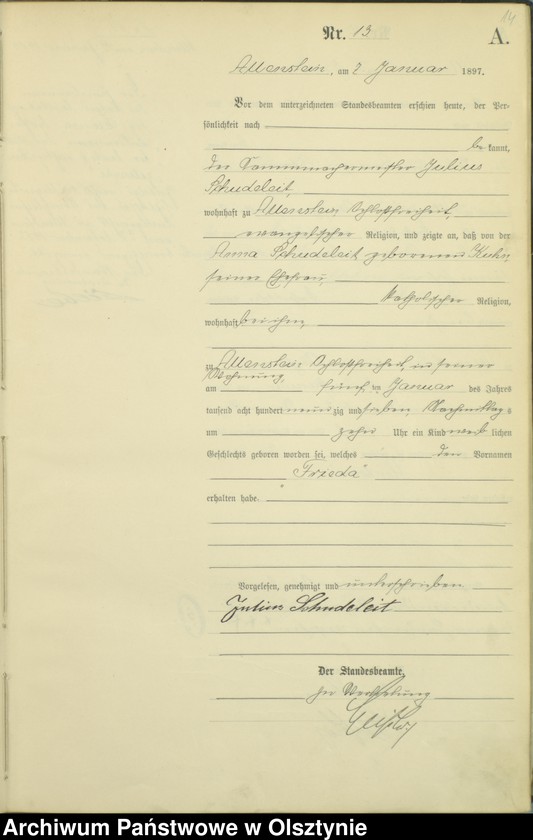 14
Nr. 13
A.
Allenstein, am 7 Januar 1897.
Vor dem unterzeichneten Standesbeamten erschien heute, der Per-
sönlichkeit nach
bekannt,
der Kammmachermeister Julius
Schudeleit,
wohnhaft zu Allenstein Schloßfreiheit,
evangelischer Religion, und zeigte an, daß von der
Anna Schudeleit geborenen Kuhn,
seiner Ehefrau,
katholischer Religion,
wohnhaft bei ihm,
zu Allenstein Schloßfreiheit, in seiner
Wohnung,
am fünften Januar des Jahres
tausend acht hundert neunzig und sieben Nachmittags
um zehn Uhr ein Kind weiblichen
Geschlechts geboren worden sei, welches den Vornamen
"Frieda"
erhalten habe.
Vorgelesen, genehmigt und unterschrieben
Julius Schudeleit
Der Standesbeamte,
In Vertretung
Archiwum Państwowe w Olsztynie